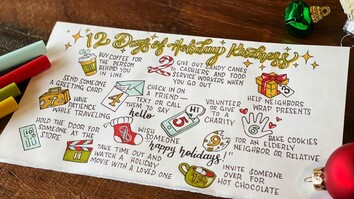 12 Days of Holiday Kindness
BUY COFFEE FOR
THE PERSON
BEHIND YOU
IN LINE
GIVE OUT CANDY CANES
TO CASHIERS AND FOOD
SERVICE WORKERS WHEN
YOU GO OUT
SEND SOMEONE
A GREETING CARD
CHECK IN ON
A FRIEND—
TEXT OR CALL
THEM TO SAY
hello
HELP NEIGHBORS
WRAP PRESENTS
HAVE
PATIENCE
WHILE TRAVELING
VOLUNTEER
OR GIVE
TO A
CHARITY
BAKE COOKIES
FOR AN ELDERLY
NEIGHBOR OR RELATIVE
HOLD THE DOOR FOR
SOMEONE AT THE
STORE
WISH
SOMEONE
happy holidays!
TAKE TIME OUT AND
WATCH A HOLIDAY
MOVIE WITH A LOVED ONE
INVITE SOMEONE
OVER FOR
HOT CHOCOLATE